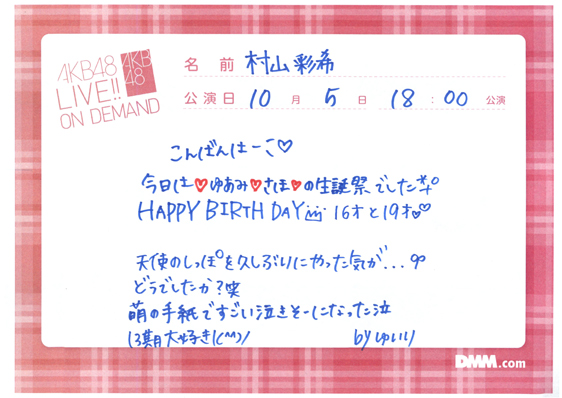 AKB48
LIVE!!
ON DEMAND
AKB
48
名前 村山彩希
公演日 10月 5日 18:00 公演
こんばんはーこ♡
今日は♥ゆあみ♥さほ♥の生誕祭でした
HAPPY BIRTHDAY 16才と19才♡♡
天使のしっぽを久しぶりにやった気が...
どうでしたか?笑
萌の手紙ですごい泣きそーになった泣
13期大好き!(^^)/
by ゆいり
DMM.com